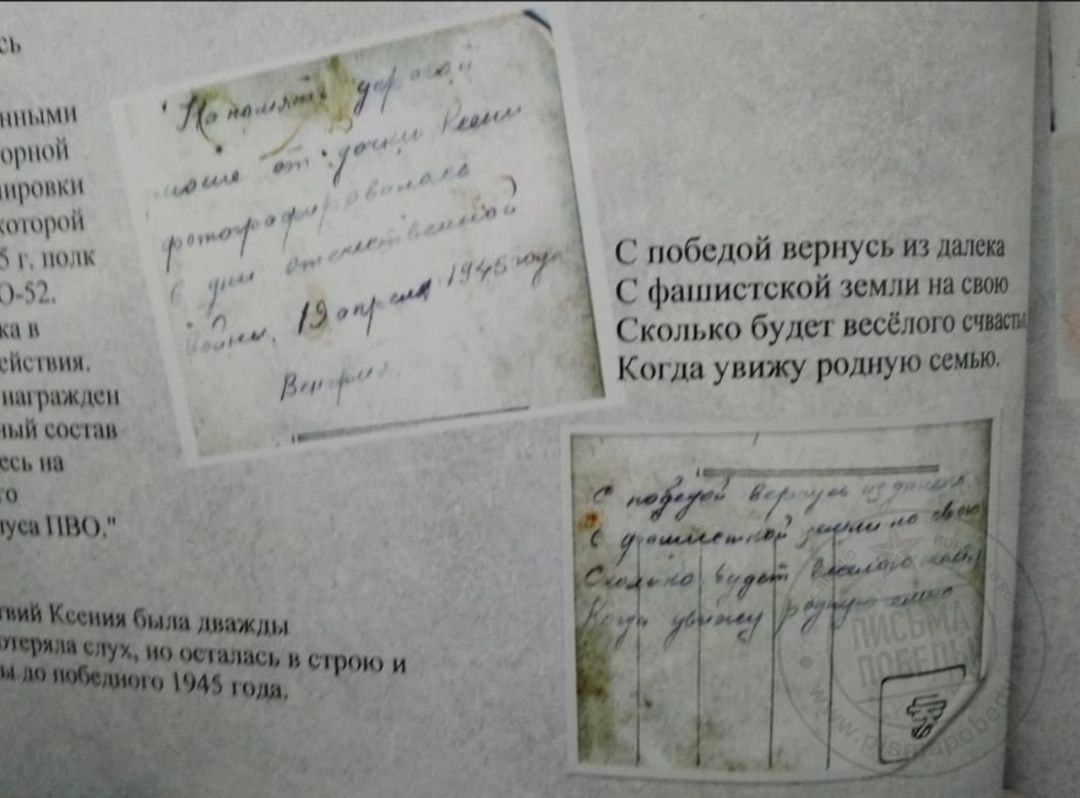 сь
нными
орной
ировки
которой
5 г. полк
О-52.
ка в
ействия.
награжден
ный состав
есь на
го
пуса ПВО."
твий Ксения была дважды
отеряла слух, но осталась в строю и
ы до победного 1945 года.
На помять дорогой
моше от дочки Ксени
фотографировалась
в дни отечественной
войны. 19 апреля 1945 года
Венгрия.
С победой вернусь из далека
С фашистской земли на свою
Сколько будет весёлого счвасть
Когда увижу родную семью.
С победой вернусь из далека
С фашисткой земли на свою
Сколько будет веселого
Когда увижу родную
ПИСЬМА
ПОБЕДЫ
www.pismapobedy